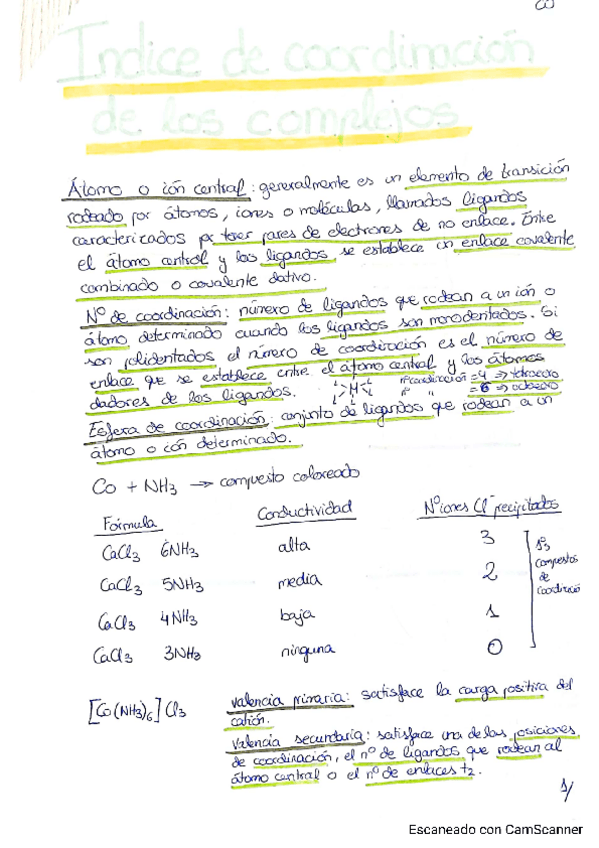 Indice de coordinación
de los complejos
Átomo o ión central: generalmente es un elemento de transición
rodeado por átomos, iones o moléculas, llamados ligandos
caracterizados por tener pares de electrones de no enlace. Entre
el átomo central y los ligandos, se establece un enlace covalente
combinado o covalente dativo.
Nº de coordinación: número de ligandos que rodean a un ión o
átomo determinado cuando los ligandos son monodentados. Si
son polidentados el número de coordinación es el número de
enlace que se establece entre el átomo central y los átomos
dadores de los ligandos.
M
nº coordinación = 4 → tetraedro
" " 6 → octaedro
Esfera de coordinación: conjunto de ligandos que rodean a un
átomo o ión determinado.
Co + NH3 → compuesto coloreado
Fórmula Conductividad Nº iones Cl⁻ precipitados
CaCl3 6NH3 alta 3
CaCl3 5NH3 media 2
CaCl3 4NH3 baja 1
CaCl3 3NH3 ninguna 0
compuestos
de
coordinación
[Co(NH3)6]Cl3
valencia primaria: satisface la carga positiva del
catión.
valencia secundaria: satisface una de las posiciones
de coordinación, el nº de ligandos que rodean al
átomo central o el nº de enlaces t2.
1/
Escaneado con CamScanner